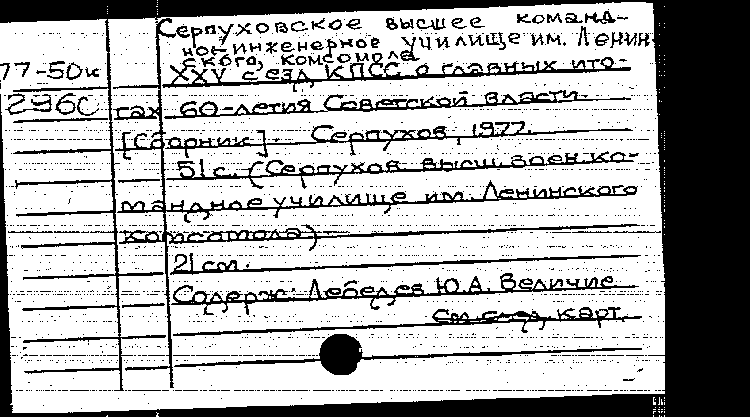 Серпуховское высшее команд-
но-инженерное училище им. Ленин-
ского комсомола
77-50к XXV съезд КПСС о главных ито-
2960 гах 60-летия Советской власти.
[Сборник]. Серпухов, 1977.
51 с. (Серпухов. высш. воен. ко-
мандное училище им. Ленинского
комсомола)
21 см.
Содерж.: Лебедев Ю.А. Величие
См. след. карт.